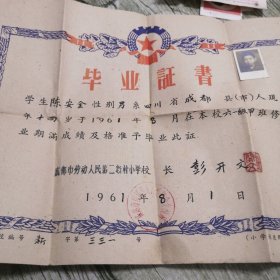 毕业証書
学生陈安全性别男系四川省成都县(市)人现
年十四岁于1961年8月在本校六一級甲班修
业期滿成績及格准予毕业此証
成都市劳动人民第二 小学校长 彭开文
1961年8月1日
新字第三三一号